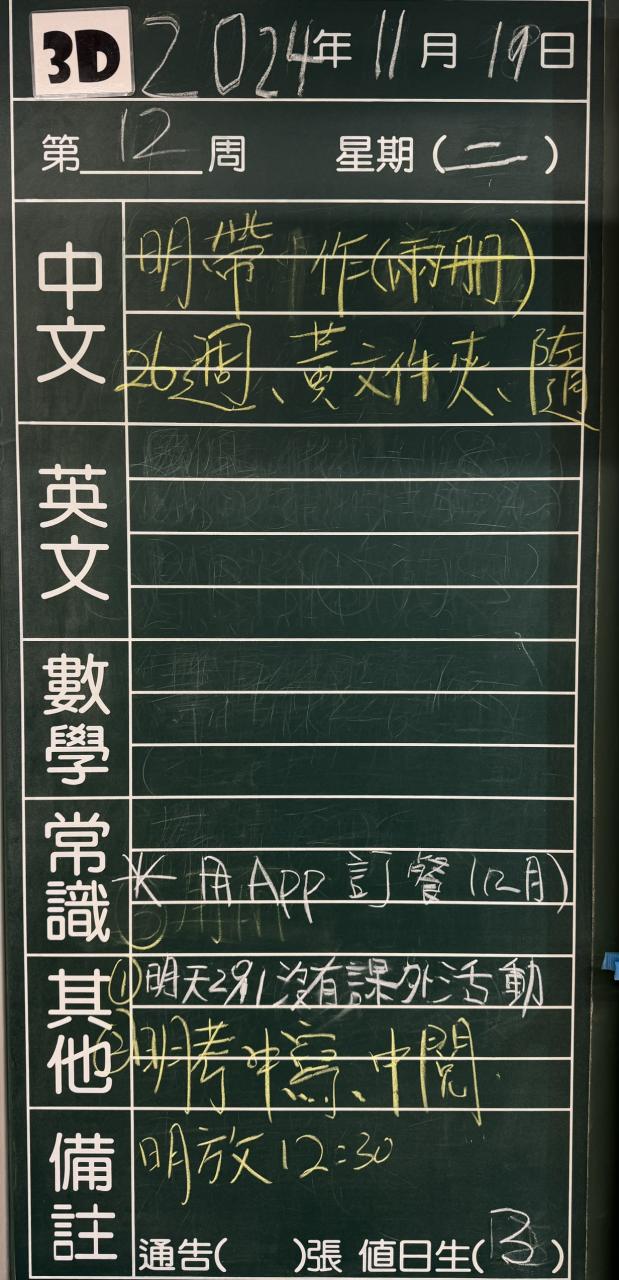 3D 2024年 11月 19日
第 12 周 星期(二)
中文
明帶 作(兩冊)
26週、黃文件夾、隨
英文
數學
常識
* 用 App 訂餐 (12月)
其他
①明天291沒有課外活動
②明考中寫、中閱
備註
明放 12:30
通告( )張 值日生(B)